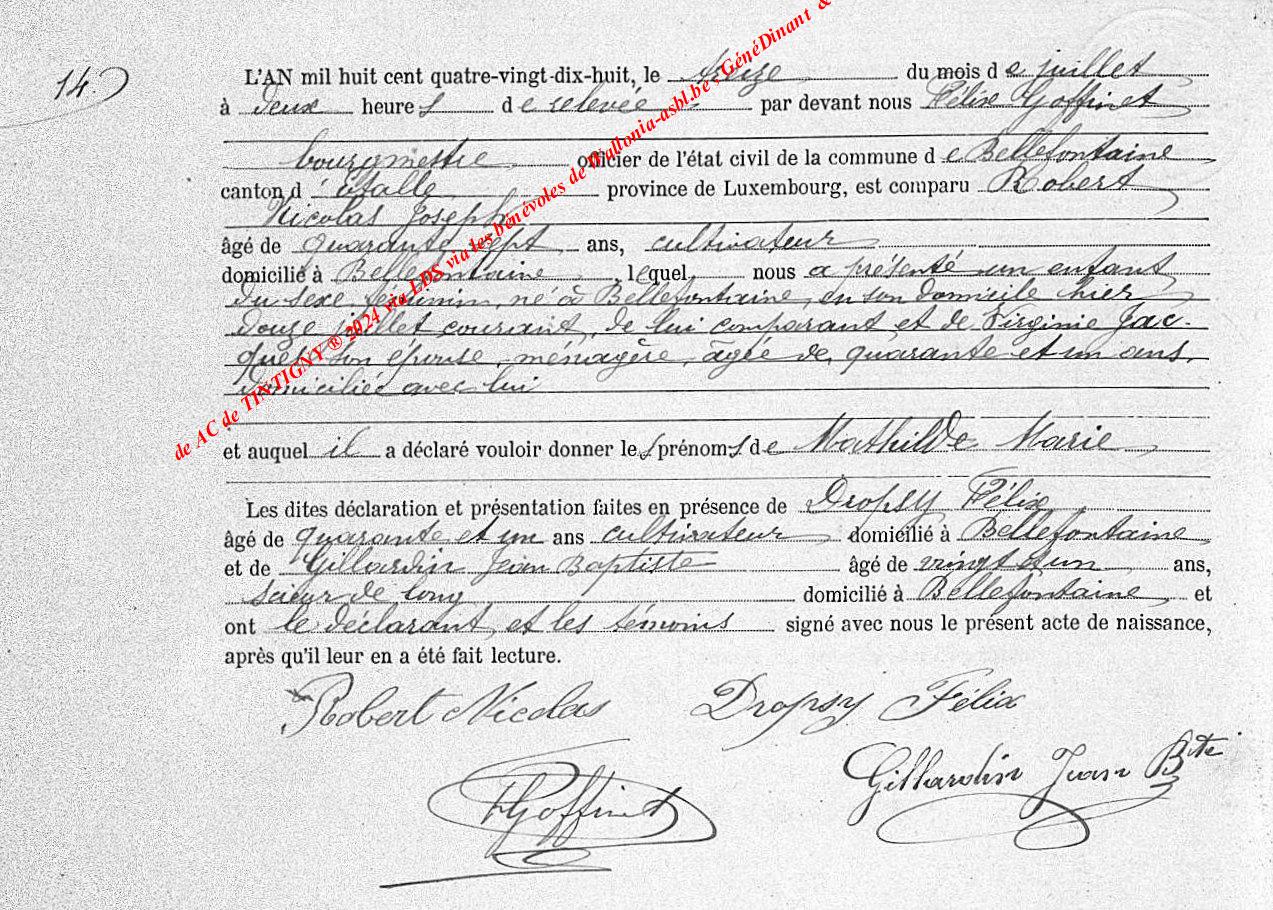 14.
L'AN mil huit cent quatre-vingt-dix-huit, le treize du mois de juillet
à deux heures de relevée par devant nous Félix Goffinet
bourgmestre officier de l'état civil de la commune de Bellefontaine
canton d'étalle province de Luxembourg, est comparu Robert
Nicolas Joseph
âgé de quarante sept ans, cultivateur
domicilié à Bellefontaine, lequel, nous a présenté un enfant
du sexe féminin, né à Bellefontaine, en son domicile hier
douze juillet courant, de lui comparant et de Virginie Jac-
ques son épouse, ménagère, âgée de quarante et un ans,
domiciliée avec lui
et auquel il a déclaré vouloir donner les prénoms de Mathilde Marie
Les dites déclaration et présentation faites en présence de Dropsy Félix
âgé de quarante et un ans cultivateur domicilié à Bellefontaine
et de Gillardin Jean Baptiste âgé de vingt sun ans,
scieur de long domicilié à Bellefontaine, et
ont le déclarant, et les témoins signé avec nous le présent acte de naissance,
après qu'il leur en a été fait lecture.
Robert Nicolas Dropsy Félix
FGoffinet Gillardin Jean Bte
de AC de TINTIGNY ® 2024 via LDS via les bénévoles de Wallonia-asbl.be - GénéDinant &